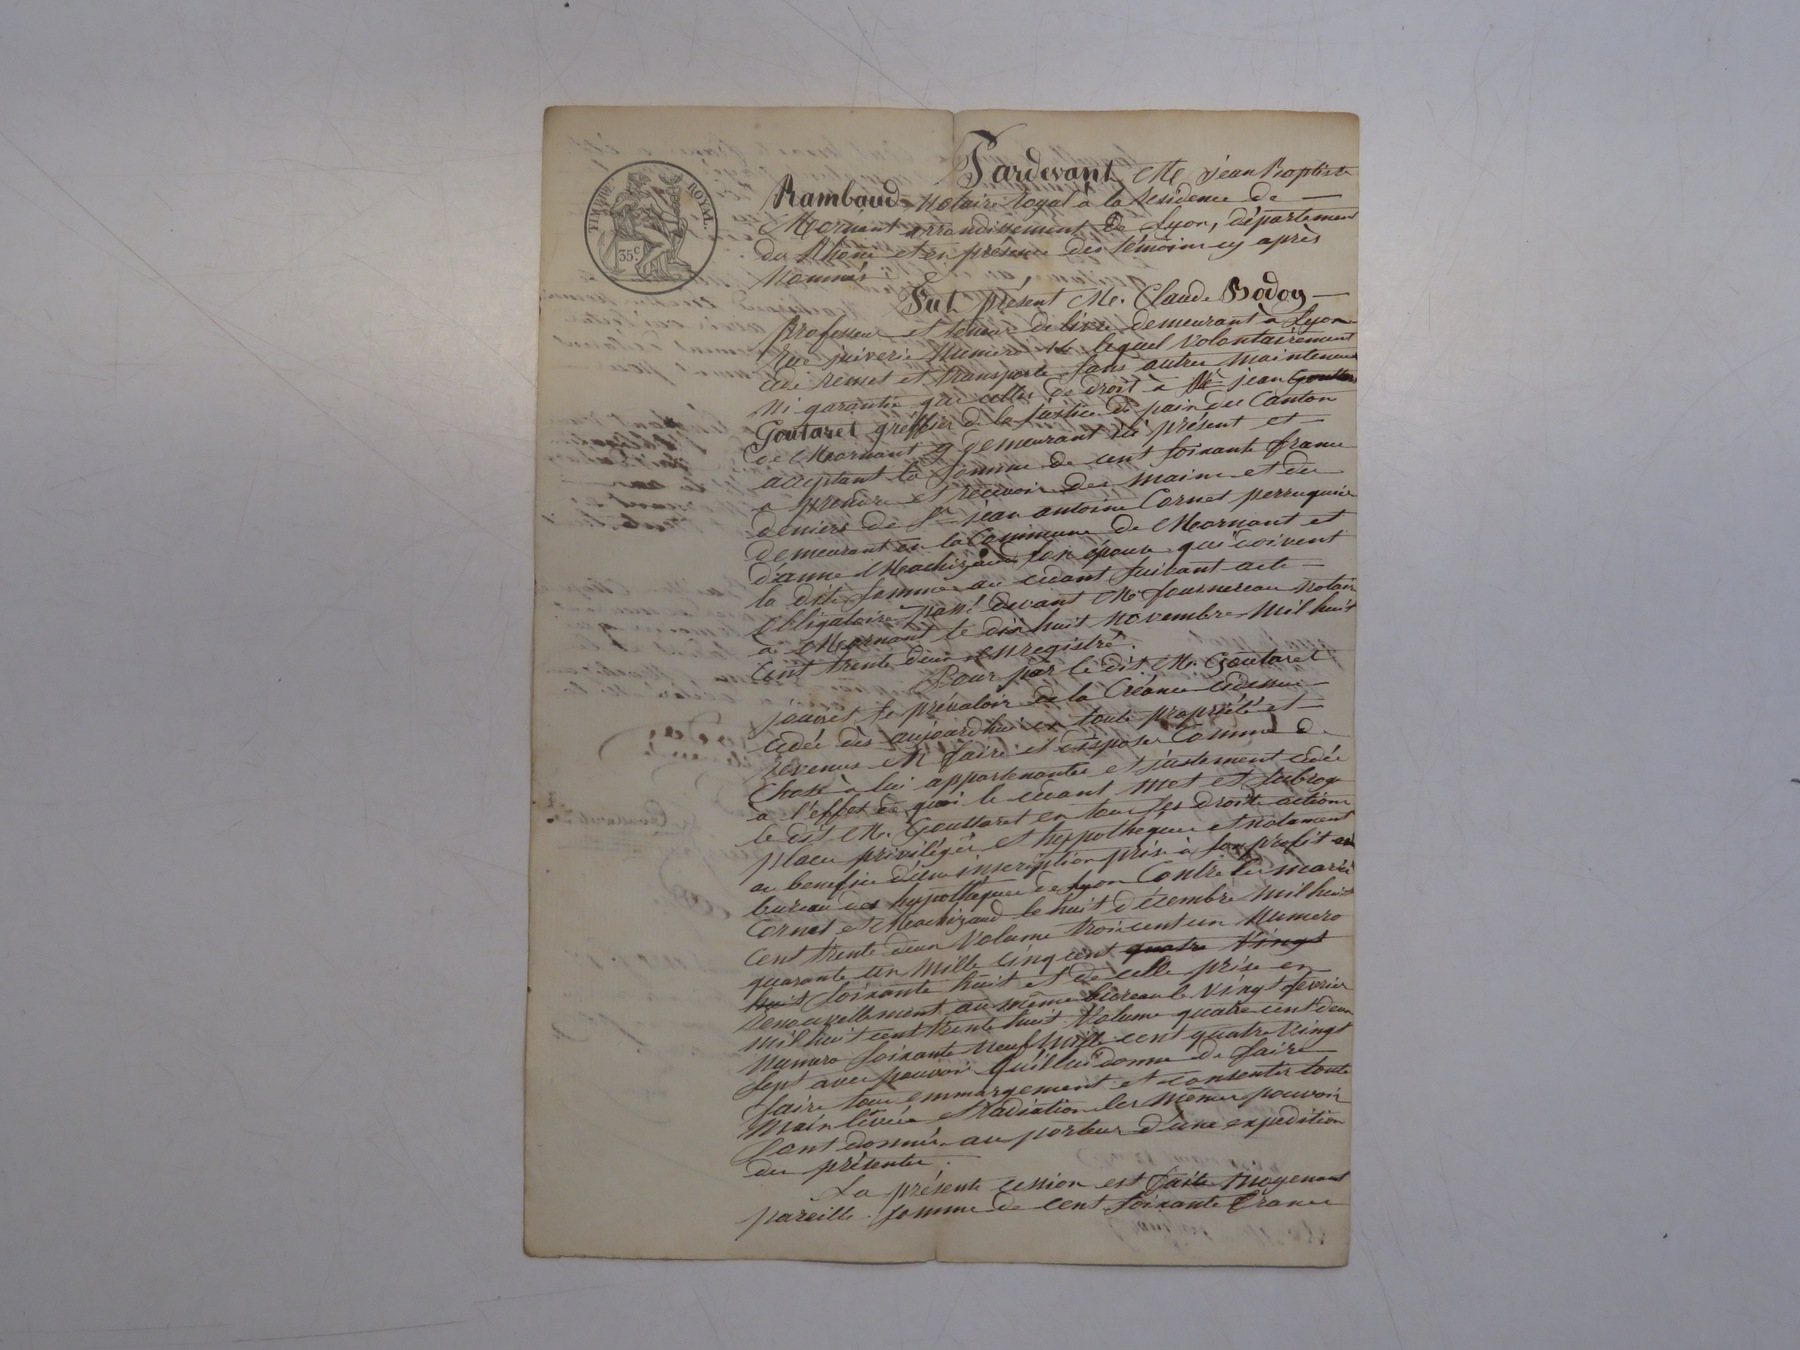 TIMBRE ROYAL.
35 c
Pardevant Me jean Baptiste
Rambaud Notaire Royal à la Résidence de
Mornant arrondissement de Lyon, département
du Rhône et en présence des témoins cy après
Nommés
Fut présent Mr. Claude Bodoy
professeur et teneur de livre demeurant à Lyon
Rue juiverie Numéro lequel volontairement
cede remet et transporte sans autre maintenue
Ni garantie que celles de droit à Me jean Gouttar
Goutaret greffier de la justice de paix du Canton
de Mornant y demeurant ici présent et
acceptant la somme de cent soixante francs
a prendre et recevoir des mains et des
deniers de Sr jean antoine Cornet perruquier
demeurant en la Commune de Mornant et
d'anne Machizaud son épouse qui doivent
la dite somme au cédant suivant acte
obligatoire passé devant Me fournereau Notaire
a Mornant le dix huit Novembre Mil huit
Cent trente deux enregistré.
Pour par le dit Mr. Goutaret
jouir et se prévaloir de la Créance cidessus
cédée dès aujourdhui en toute propriété et
revenus en faire et disposer Comme de
Chose à lui appartenantes et justement cédée
a l'effet de quoi le cédant met et subroge
le dit Mr. Gouttaret en tous ses droits actions
places privilèges et hypothèques et notament
au benefice d'une inscription prise à son profit au
bureau des hypothèques de Lyon Contre les mariés
Cornet et Machizaud le huit décembre Mil huit
Cent trente deux Volume trois cent un Numero
quarante un mille cinq cent quatre Vingt
huit soixante huit et de celle prise en
Renouvellement au même bureau le Vingt fevrier
Mil huit cent trente huit Volume quatre cent deux
Numero soixante neuf mille cent quatre Vingt
sept avec pouvoir qu'il lui donne de faire
faire tous emmargement et consentir toute
Main levée et radiation les mêmes pouvoir
sont donnés au porteur d'une expédition
des présentes.
La présente cession est faite moyenant
pareille somme de cent soixante francs